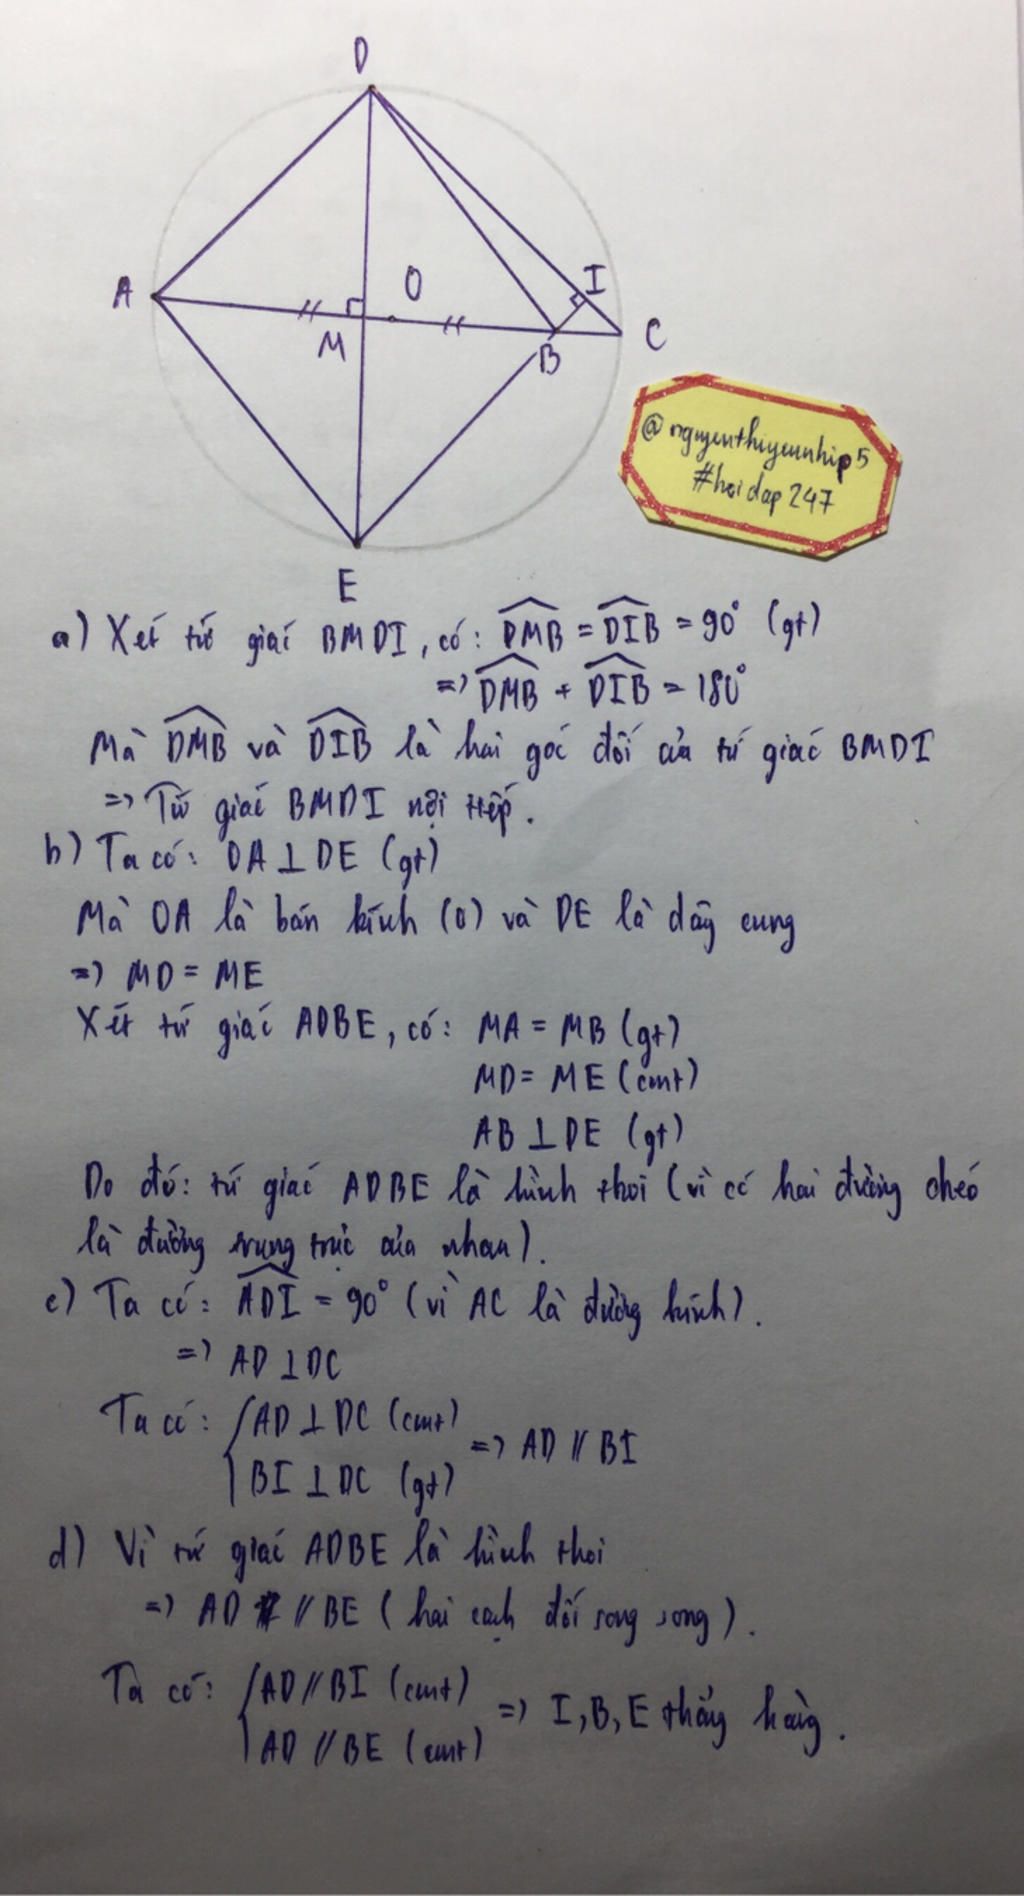 D
A
O
I
M
B
C
E
@nguyenthiyennhip5
#hoidap247
a) Xét tứ giác BMDI, có: DMB = DIB = 90° (gt)
=> DMB + DIB = 180°
Mà DMB và DIB là hai góc đối của tứ giác BMDI
=> Tứ giác BMDI nội tiếp.
b) Ta có: OA ⊥ DE (gt)
Mà OA là bán kính (O) và DE là dây cung
=> MD = ME
Xét tứ giác ADBE, có: MA = MB (gt)
MD = ME (cmt)
AB ⊥ DE (gt)
Do đó: tứ giác ADBE là hình thoi (vì có hai đường chéo
là đường trung trực của nhau).
c) Ta có: ADI = 90° (vì AC là đường kính).
=> AD ⊥ DC
Ta có: { AD ⊥ DC (cmt)
BI ⊥ DC (gt) => AD // BI
d) Vì tứ giác ADBE là hình thoi
=> AD // BE (hai cạnh đối song song).
Ta có: { AD // BI (cmt)
AD // BE (cmt) => I, B, E thẳng hàng.